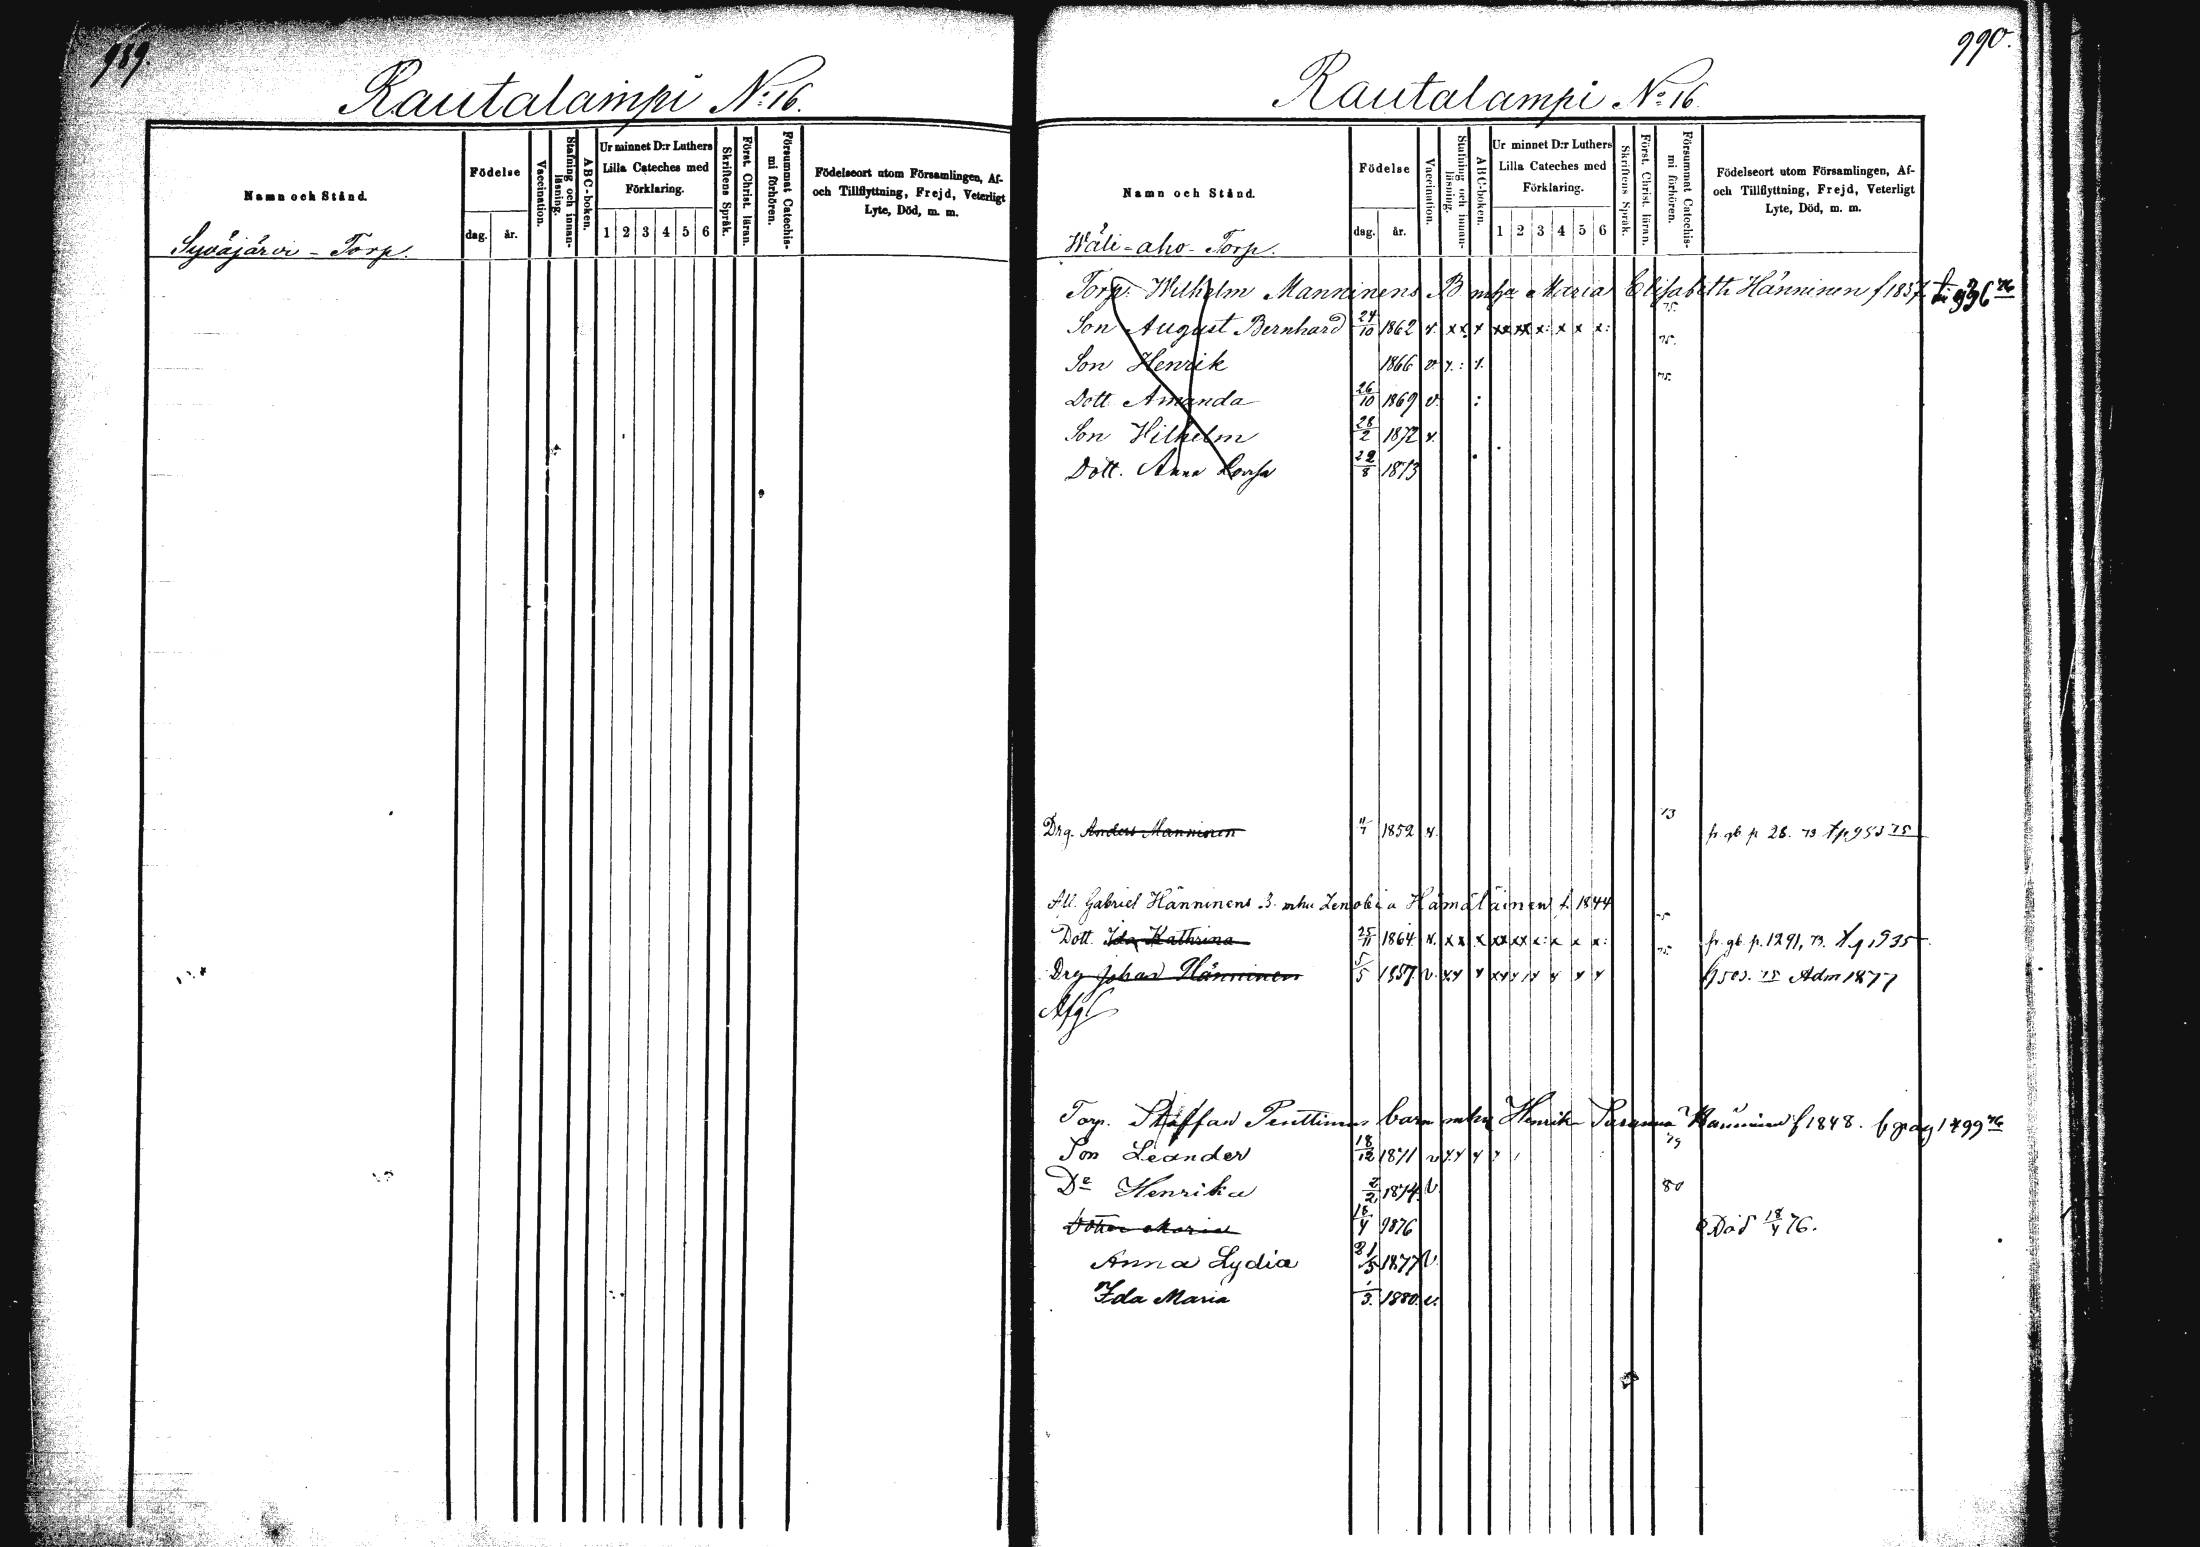 989.
Rautalampi No: 16.
Namn och Stånd.
Födelse
dag.
år.
Vaccination.
Stafning och innan-
läsning.
ABC-boken.
Ur minnet D:r Luthers
Lilla Cateches med
Förklaring.
1 2 3 4 5 6
Skriftens Språk.
Först. Christ. läran.
Försummat Catechis-
mi förhören.
Födelseort utom Församlingen, Af-
och Tillflyttning, Frejd, Veterligt
Lyte, Död, m. m.
Syväjärvi - Torp.
990.
Rautalampi No: 16.
Namn och Stånd.
Födelse
dag.
år.
Vaccination.
Stafning och innan-
läsning.
ABC-boken.
Ur minnet D:r Luthers
Lilla Cateches med
Förklaring.
1 2 3 4 5 6
Skriftens Språk.
Först. Christ. läran.
Försummat Catechis-
mi förhören.
Födelseort utom Församlingen, Af-
och Tillflyttning, Frejd, Veterligt
Lyte, Död, m. m.
Wäli-aho- Torp.
Torp. Wilhelm Manninens B mhu Maria Elisabeth Hänninen f 1837
Son August Bernhard 24/10 1862 v. xx x xx xx x: x x x: 75.
Son Henrik 1866 v x. : x. 75.
Dott Amanda 26/10 1869 v. : 75.
Son Hilhelm 28/2 1872 v.
Dott. Anna Lovisa 22/8 1873
Drg. Anders Manninen 1852 v. 73 fr. gb p 28. 73 t p 953 75
Afl. Gabriel Hänninens B. mhu Zenobia Hämäläinen f. 1844
Dott. Ida Kathrina 25/11 1864 v. xx x xx xx x: x x x: 75 fr. gb. p. 1291, 73. t p 935
Drg Johan Hänninen 5/5 1857 v. xx x xx x x x x x 75. p 503. 75 Adm 1877
Afg.
Torp. Staffan Penttinens barn mhu Henrika Susanna Hänninen f 1848. fr pag 1499 76
Son Leander 18/12 1871 v xx x x 79
De Henrika 2/2 1874 v 80
Dotter Maria 18/4 1876 Död 18/4 76.
Anna Lydia 21/5 1877 v.
Ida Maria 1/3. 1880. v.